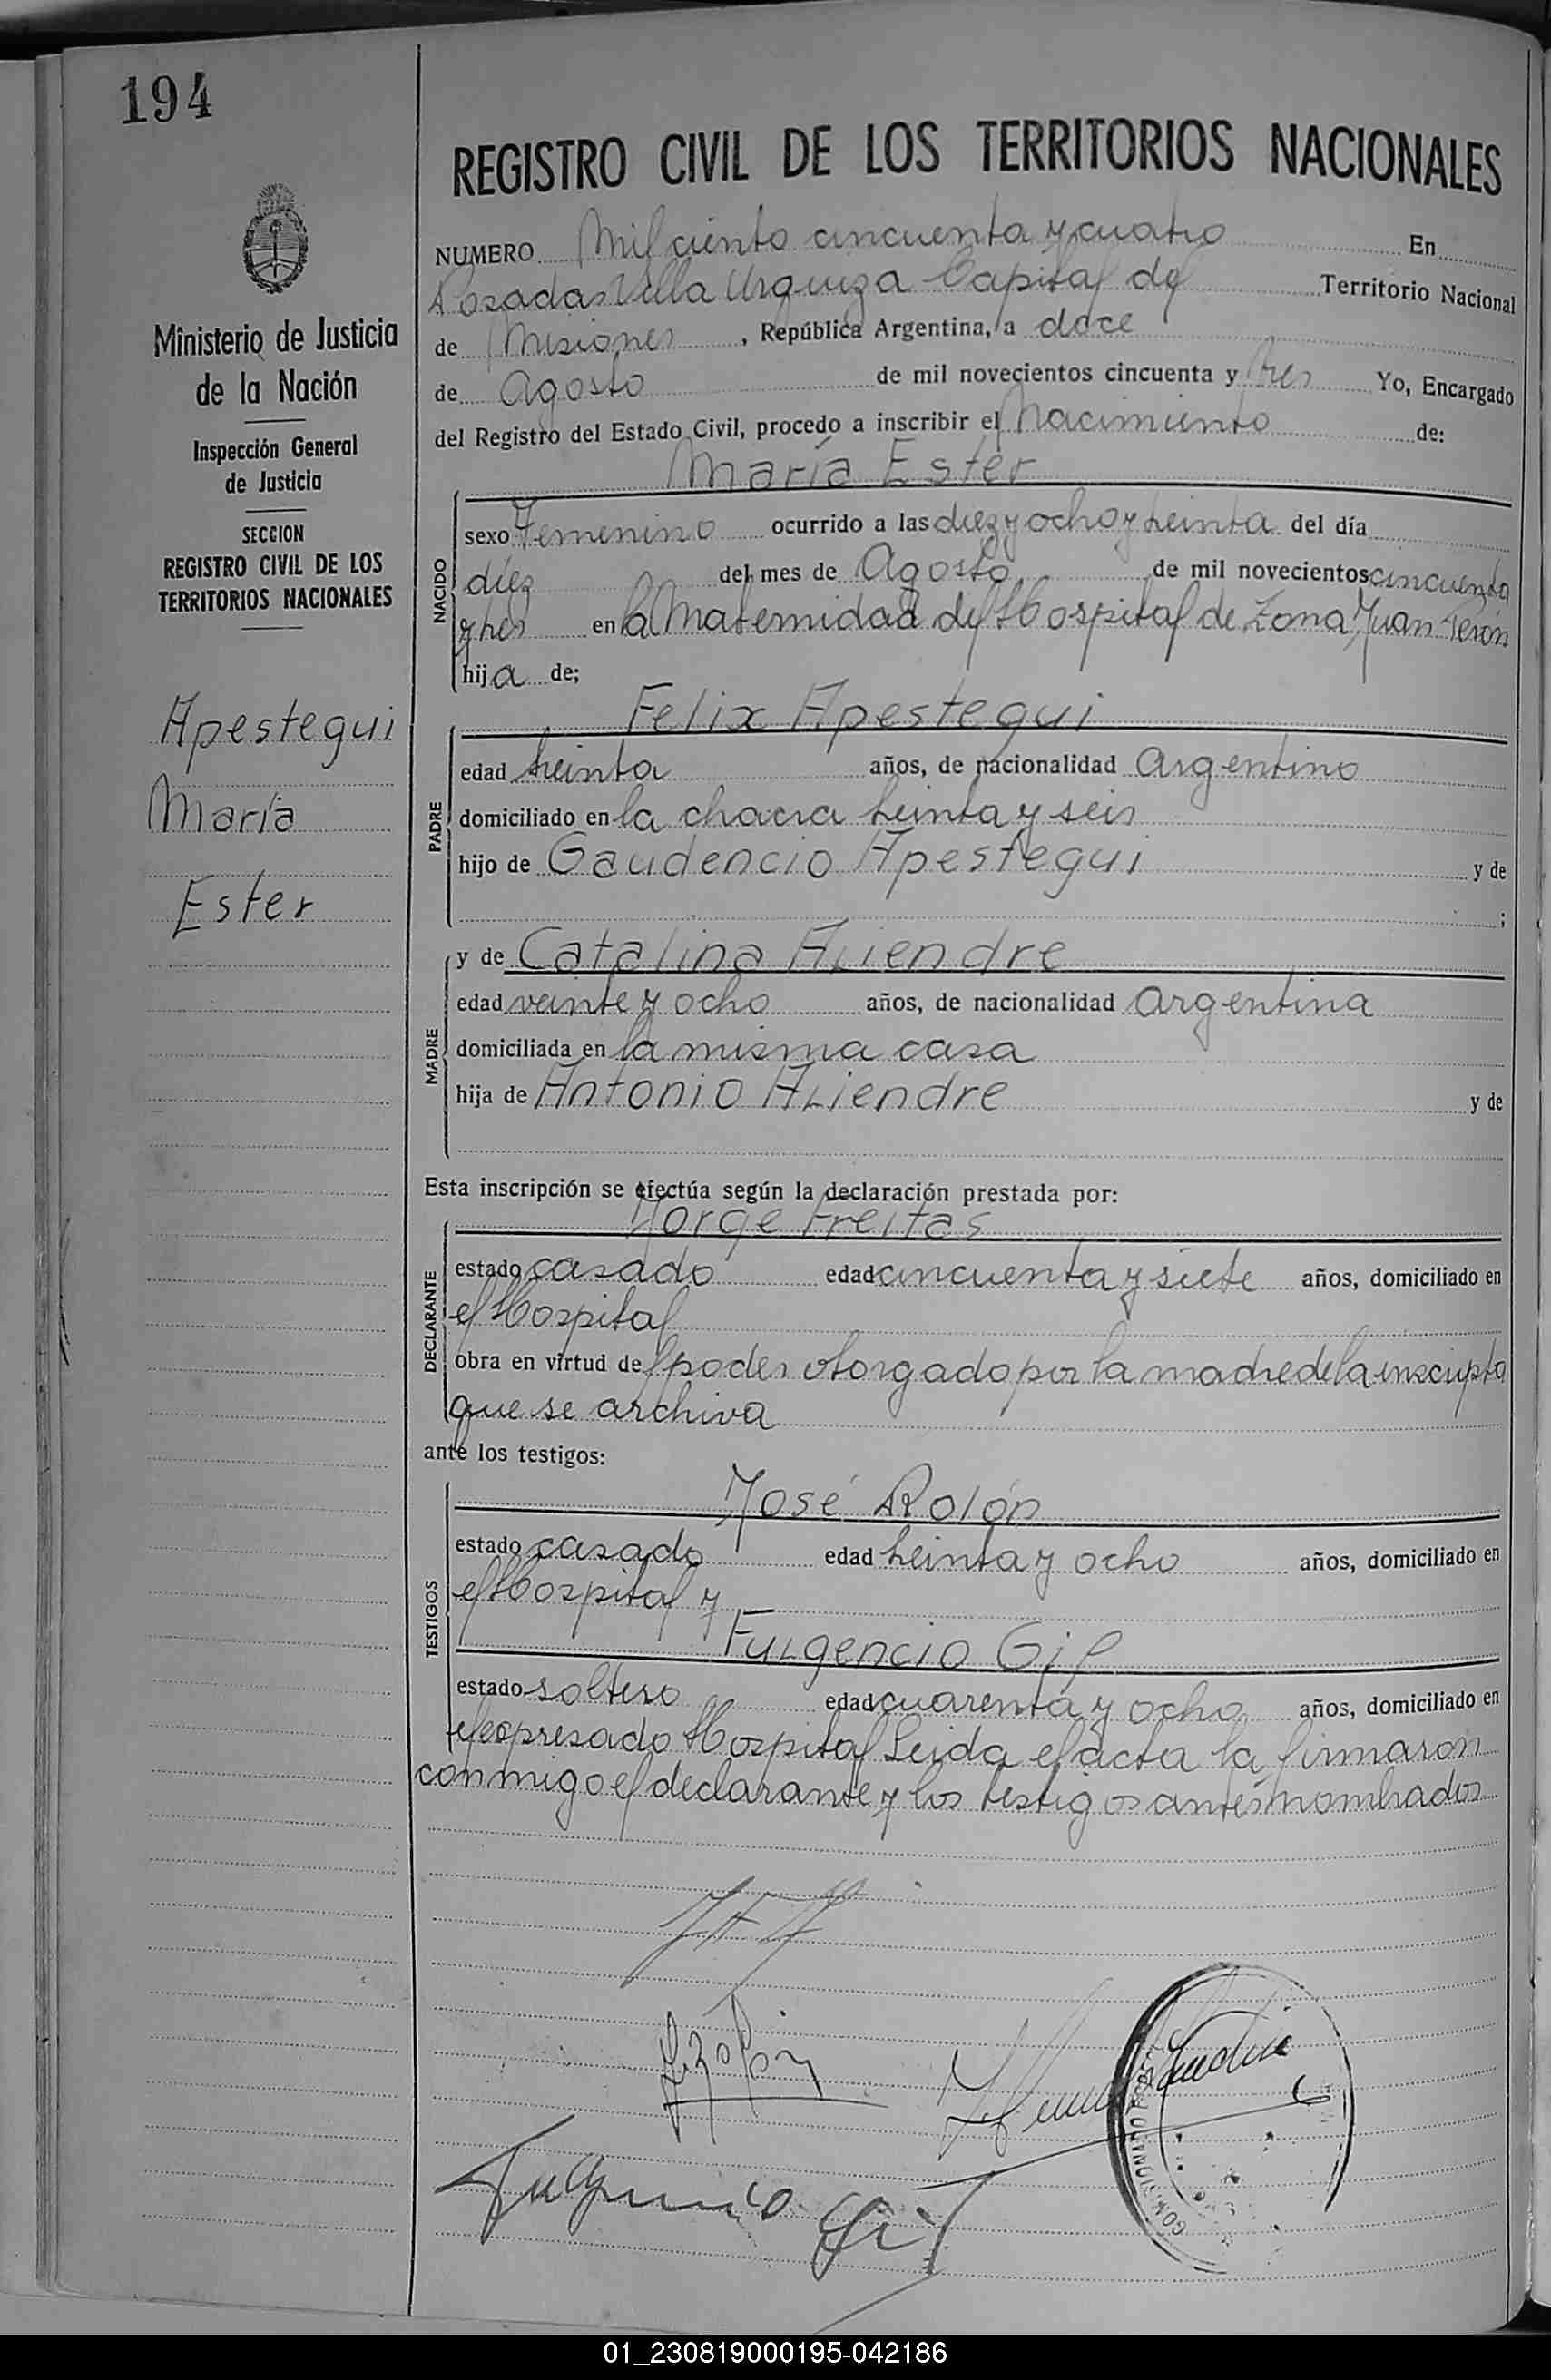 194
REGISTRO CIVIL DE LOS TERRITORIOS NACIONALES
Ministerio de Justicia
de la Nación
Inspección General
de Justicia
SECCION
REGISTRO CIVIL DE LOS
TERRITORIOS NACIONALES
Apestegui
María
Ester
NUMERO Mil ciento cincuenta y cuatro En
Posadas Villa Urquiza Capital del Territorio Nacional
de Misiones, República Argentina, a doce
de Agosto de mil novecientos cincuenta y tres Yo, Encargado
del Registro del Estado Civil, procedo a inscribir el Nacimiento de:
María Ester
NACIDO
sexo Femenino ocurrido a las diez y ocho y treinta del día
diez del mes de Agosto de mil novecientos cincuenta
y tres en la Maternidad del Hospital de Zona Juan Peron
hija de;
Felix Apestegui
PADRE
edad treinta años, de nacionalidad Argentino
domiciliado en la chacra treinta y seis
hijo de Gaudencio Apestegui y de
;
y de Catalina ALiendre
MADRE
edad veinte y ocho años, de nacionalidad Argentina
domiciliada en la misma casa
hija de Antonio ALiendre y de
Esta inscripción se efectúa según la declaración prestada por:
Jorge Freitas
DECLARANTE
estado casado edad cincuenta y siete años, domiciliado en
el Hospital
obra en virtud del poder otorgado por la madre de la inscripta
que se archiva
ante los testigos:
José Rolón
TESTIGOS
estado casado edad treinta y ocho años, domiciliado en
el Hospital y
Fulgencio Gil
estado soltero edad cuarenta y ocho años, domiciliado en
el expresado Hospital Leida el acta la firmaron
conmigo el declarante y los testigos antes nombrados
Fulgencio Gil
01_230819000195-042186